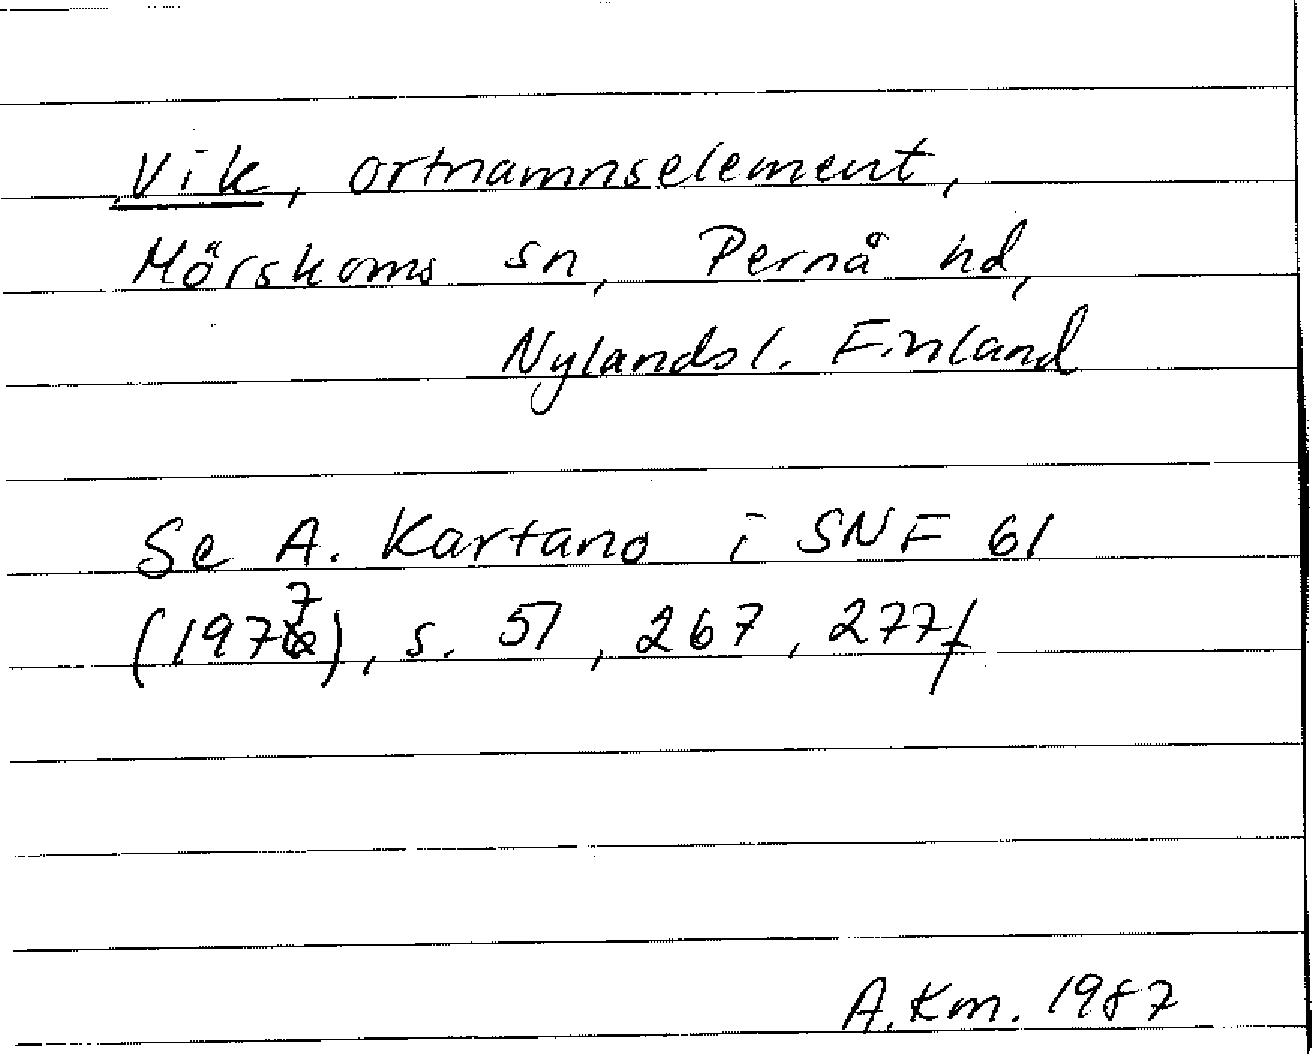 Vik, ortnamnselement,
Mörskoms sn, Pernå hd,
Nylands l. Finland
Se A. Kartano i SNF 61
(1977), s. 57, 267, 277f
A. Km. 1987